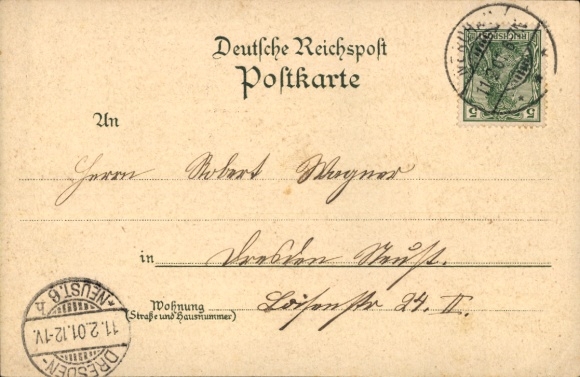 Deutsche Reichspost
Postkarte
An
Herrn Robert Wagner
in Dresden Neust.
Wohnung
(Straße und Hausnummer)
Loisenstr 24. II.
5 5
REICHSPOST
DRESDEN-
*NEUST.6*
11.2.01.12-1V.